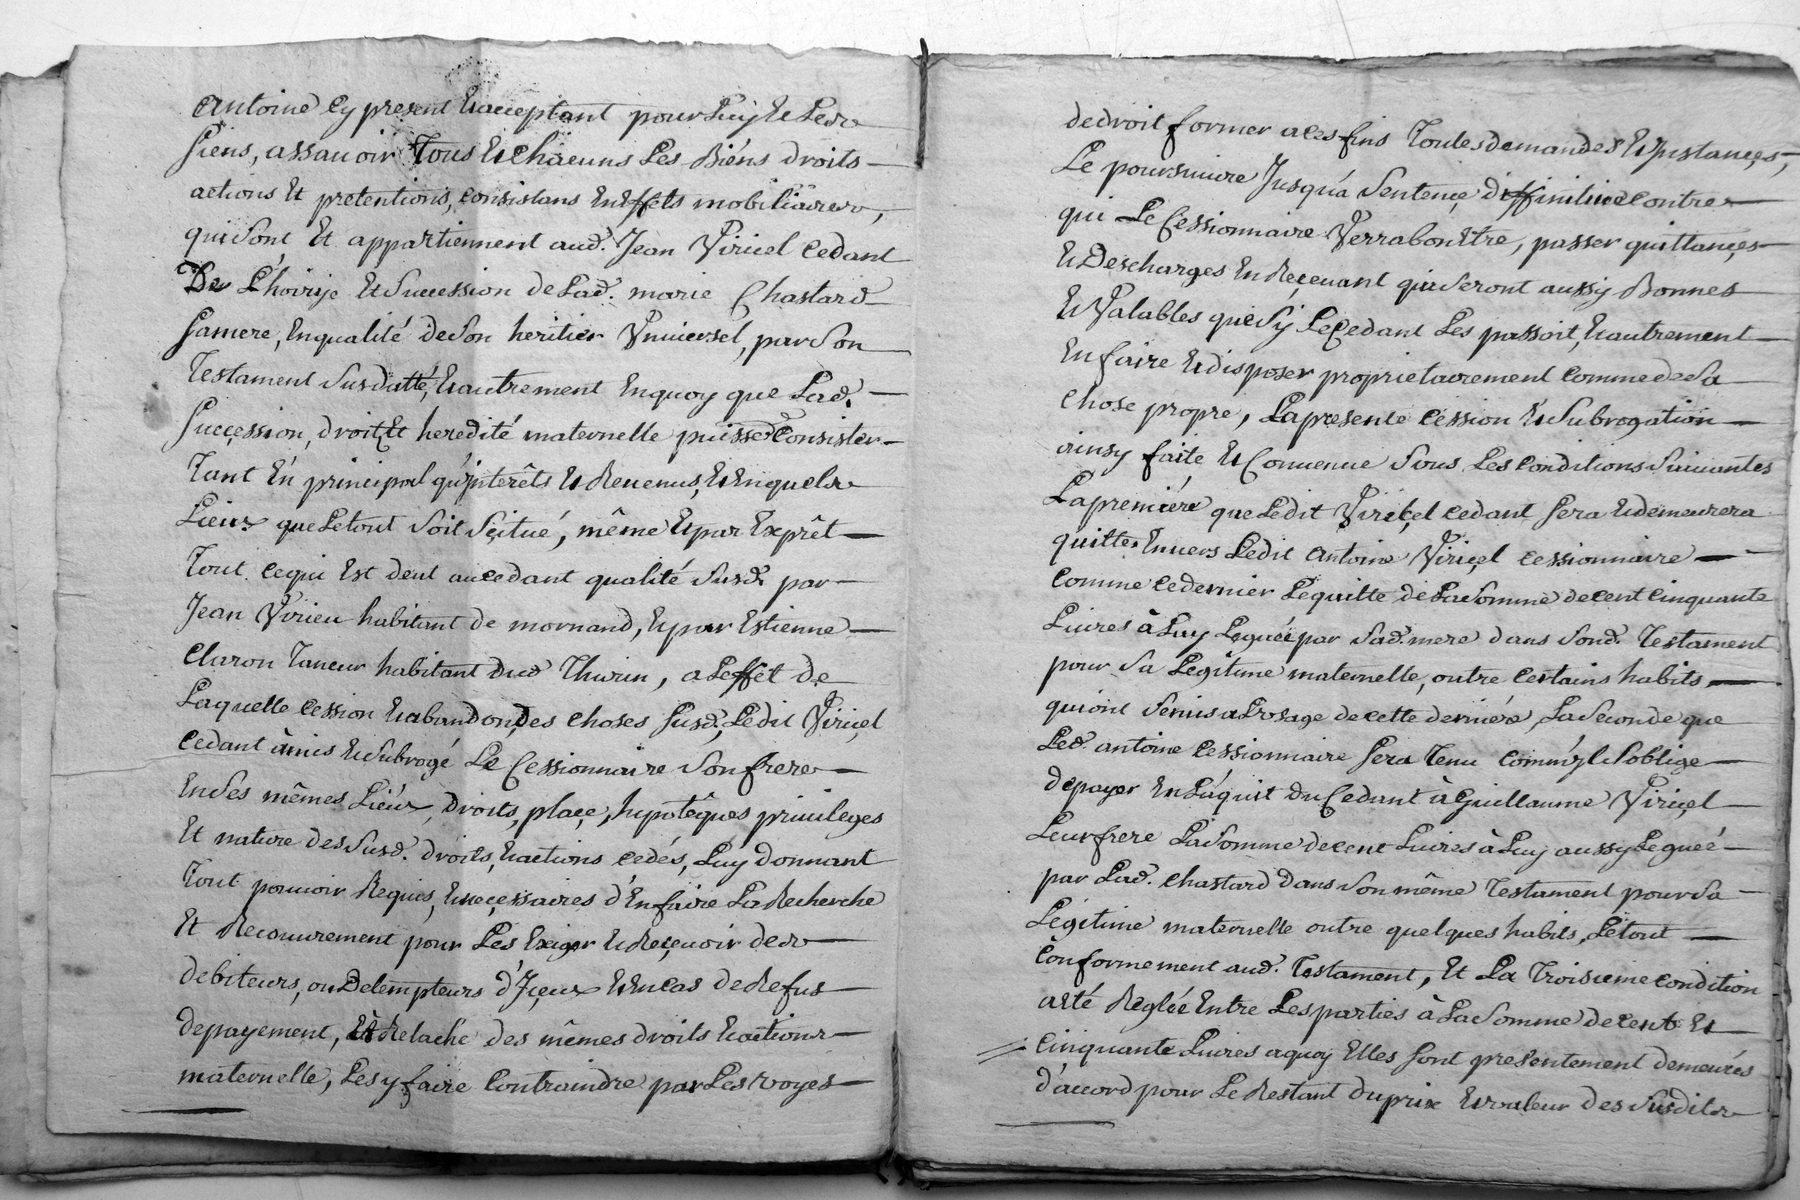 Antoine Cy present Et acceptant pour Luy Et Les
Siens, assauoir Tous Et Chacuns Les Biens droits
actions Et pretentions, consistans En Effets mobiliaires,
qui Sont Et appartiennent aud. Jean Viricel Cedant
De L'hoirye Et Succession de Lad. marie Chastard
Sa mere, En qualité de Son heritier Vniuersel, par Son
Testament Susdatté, Et autrement En quoy que Lad.
Succession, droit Et heredité maternelle puisse Consister
Tant En principal qu'jnterêts Et Reuenus, Et En quels
Lieux que Le tout Soit Scitué, même Et par Exprêt
Tout ce qui Est deut au cedant qualité Susd. par
Jean Virieu habitant de mornand, Et par Estienne
Claron Taneur habitant dud Thurin, a Leffet de
Laquelle cession Et abandon, des choses Susd., Ledit Viriçel
Cedant à mis Et Subrogé Le Cessionnaire Son frere
En Ses mêmes Liéux, droits, plaçe, hypotêques priuileges
Et nature des Susd. droits, Et actions cedés, Luy donnant
Tout pouuoir Requis, Et neçessaires d'En faire La Recherche
Et Recouurement pour Les Exiger Et Reçeuoir des
debiteurs, ou Detempteurs d'Jçeux Et En cas de Refus
de payement, Et Relache des mêmes droits Et actions
maternelle, Les y faire Contraindre par Les voyes
de droit former a ces fins Toutes demandes Et Jnstançes,
Le poursuiure Jusqu'a Sentençe diffinitiue Contre
qui Le Cessionnaire Verra bon Etre, passer quittançes
Et Descharges En Reçeuant qui Seront aussy Bonnes
Et Valables que Sy Le Cedant Les passoit, Et autrement
En faire Et disposer proprietairement comme de Sa
chose propre, La presente Cession Et Subrogation
ainsy faite Et Conuenue Sous Les Conditions Suiuantes
La premiére que Ledit Viriçel cedant Sera Et demeurera
quitte Enuers Ledit Antoine Viriçel cessionnaire
Comme ce dernier Le quitte de La Somme de cent Cinquante
Liures à Luy Leguée par Sad. mere dans Sond. Testament
pour Sa Legitime maternelle, outre Certains habits
qui ont Seruis a Lusage de cette derniére, La Seconde que
Led. antoine Cessionnaire Sera Tenu Comm'yl S'oblige
de payer En L'aquit du Cedant à Guillaume Viriçel
Leur frere La Somme de cent Liures à Luy aussy Leguée
par Lad. Chastard dans Son même Testament pour Sa
Légitime maternelle outre quelques habits, Le tout
Conformement aud. Testament, Et La Troisieme Condition
a Eté Reglée Entre Les parties à La Somme de Cent Et
Cinquante Liures a quoy Elles Sont presentement demeurés
d'accord pour Le Restant du prix Et valeur des Susdits